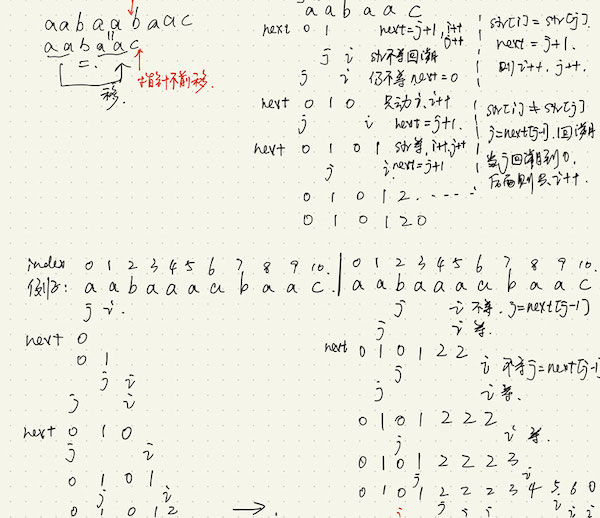 aabaabaac
aabaac
=
移.
指针不前移.
aabaac
next 0 1 next=j+1, i++ j++
j i str不等回溯
j i 仍不等 next=0
next 0 1 0 只动i, i++
j i next=j+1.
next 0 1 0 1 str等, i++, j++
j i next=j+1
0 1 0 1 2 .....
0 1 0 1 2 0
str[i] = str[j]
next = j+1.
则 i++. j++.
str[i] ≠ str[j]
j=next[j-1]. 回溯
当j回溯到0,
i++.
index 0 1 2 3 4 5 6 7 8 9 10.
例2: a a b a a a a b a a c
j i.
next 0
0 1
j i
j i
next 0 1 0
j i
0 1 0 1
j i
0 1 0 1 2
0 1 2 3 4 5 6 7 8 9 10.
a a b a a a a b a a c
j i 不等. j=next[j-1]
j i 等.
next 0 1 0 1 2 2
j i 不等 j=next[j-1]
j i 等.
0 1 0 1 2 2 2
j i 等.
0 1 0 1 2 2 2 3
j i
0 1 0 1 2 2 2 3 4 5 6 0